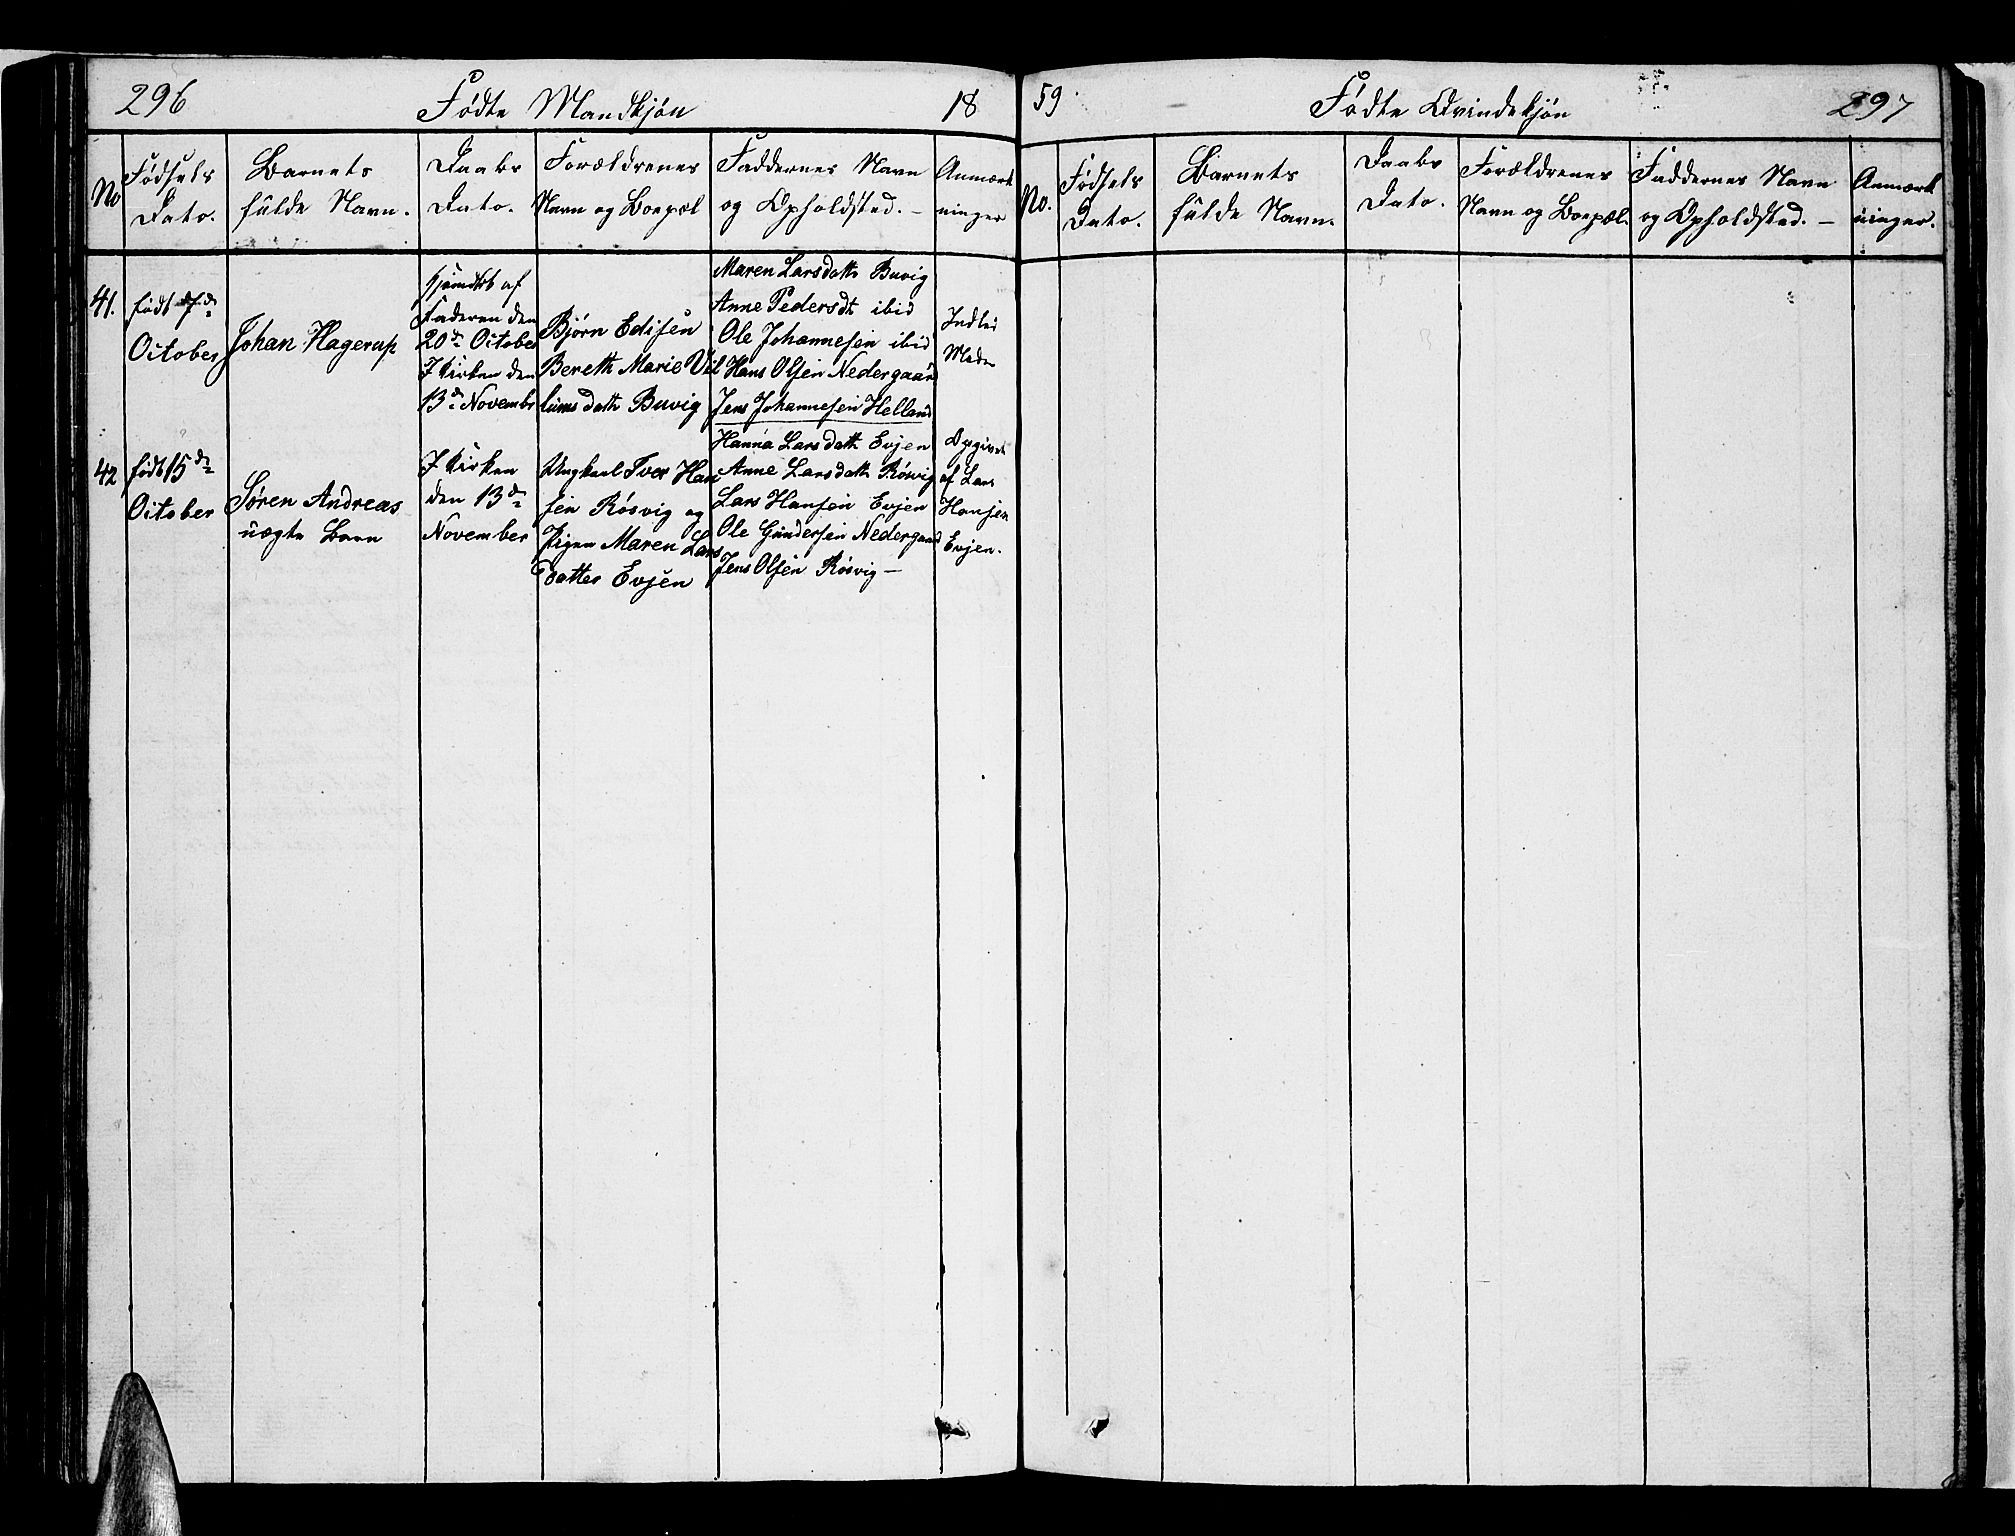 296
Fødte Mandkjøn
18
No
Fødsels
Dato.
Barnets
fulde Navn.
Daabs
Dato.
Forældrenes
Navn og Boepæl
Faddernes Navn
og Opholdsted. –
Anmærk
ninger
41.
født 7de
October
Johan Hagerup
Hjemdøbt af
Faderen den
20de October
I Kirken den
13de Novembr
Bjørn Edisen
Bereth Marie Vil
lums dath Buvig
Maren Larsdatt Buvig
Anne Pedersdt ibid
Ole Johannesen ibid
Hans Olsen Nedergaard
Jens Johannesen Helland
42
født 15de
October
Søren Andreas
uægte Barn
I Kirken
den 13de
November
Ungkarl Iver Han
sen Røsvig og
Pigen Maren Lars
datter Evjen
Hanna Larsdath Evjen
Anne Larsdath Røsvig
Lars Hansen Evjen
Ole Gundersen Nedergaard
Jens Olsen Røsvig –
Opgivet
af Lars
Hansen
Evjen.
59
Fødte Qvindekjøn
297
No.
Fødsels
Dato.
Barnets
fulde Navn.
Daabs
Dato.
Forældrenes
Navn og Boepæl.
Faddernes Navn
og Opholdsted. –
Anmærk
ninger.